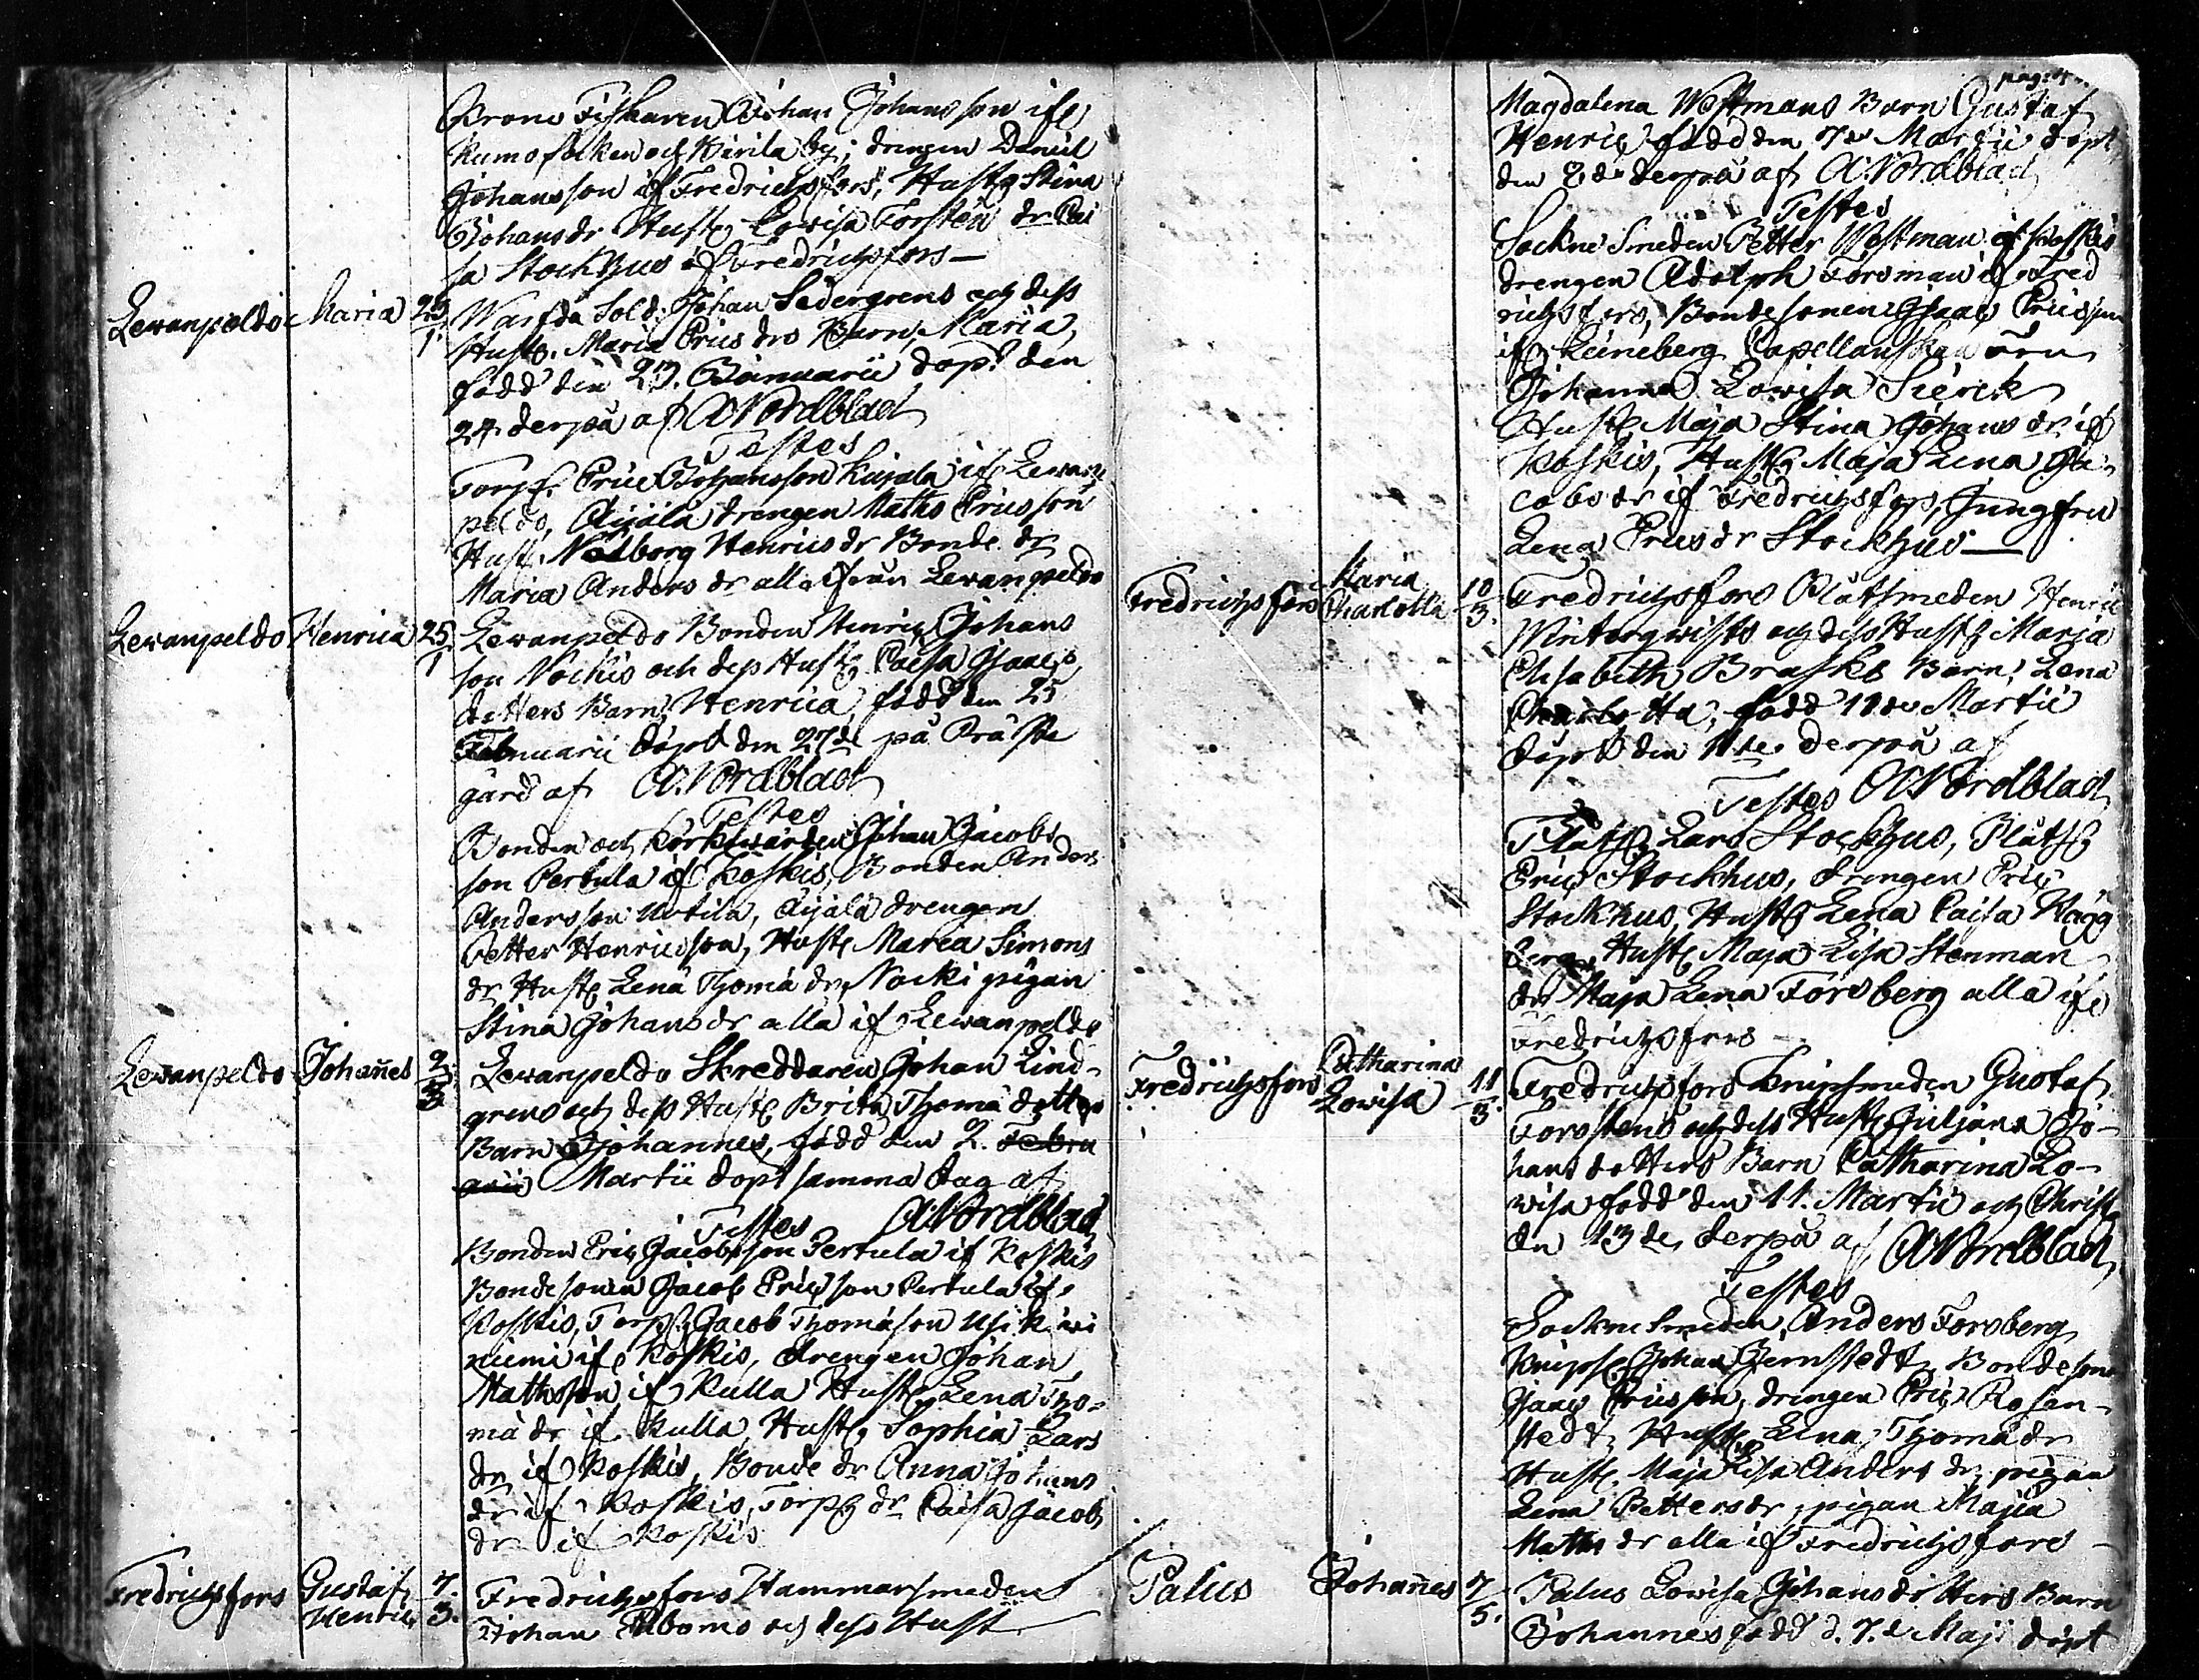 Crono Fiskaren Johan Johansson ifr
Kumo socken och Kivila by, drengen Daniel
Johansson if Fredrichsfors, Hust Stina
Johans dr Hust Lowisa Forsten dr Cai
sa Stockhus if Fredrichsfors —
Lewanpeldo Maria 23/1 Warfda Sold. Johan Sedergrens och dess
Hust. Maria Erics drs Barn, Maria,
född den 23. Januarii dopt den
24 derpå af A Nordblad
Testes
Torp. Eric Johansson Kujala if Lewan
peldo, Äijälä drengen Maths Ericsson
Hust. Walborg Henrics dr Bonde dr
Maria Anders dr alla ifrån Lewanpeldo
Lewanpeldo Henrica 25/1 Lewanpeldo Bonden Henric Johans
son Nockis och dess Hust Caisa Isaacs
dotters Barn Henrica, född den 25
Februarii döpt den 27de på Präste
gård af A. Nordblad
Testes
Bonden och Kyrkwärden Johan Jacobs
son Pertula if Koskis, Bonden Anders
Andersson Urtila, Äijälä drengen
Petter Henricsson, Hust Maria Simons
dr Hust Lena Thomä dr, Nocki pigan
Stina Johans dr alla if Lewanpeldo
Lewanpeldo Johan̄es 2/3 Lewanpeldo Skreddaren Johan Lind-
grens och dess Hust Brita Thomä dotters
Barn Johannes, född den 2. Febru
arii Martii dopt samma dag af
Testes A Nordblad
Bonden Eric Jacobsson Pertula if Koskis
Bondesonen Jacob Ericsson Pertula if
Koskis, Torp Jacob Thomäson
niemi if Koskis, drengen Johan
Mathsson if Kulla Hust Lena Tho-
mä dr if Kulla, Hust Sophia Lars
dr if Koskis, Bonde dr Anna Johans
dr if Koskis, Torp dr Caisa Jacobs
dr if Koskis
Fredrichsfors Gustaf Henric 7/3. Fredrichsfors Hammarsmeden
Johan Ekboms och dess Hust
pag:
Magdalena Westmans Barn Gustaf
Henric född den 7de Martii dopt
den 8de derpå af A. Nordblad
Testes
Sockne Smeden Petter Westman if Koskis
drengen Adolph Forsman if Fred
richsfors, Bondesonen Isaac Ericsson
if Leineberg Capellanskan
Johanna Lowisa Sierck
Hust Maja Stina Johans dr if
Koskis, Hust Maja Lena Ja-
cobs dr if Fredrichsfors, Jungfru
Lena Erics dr Stockhus —
Fredrichsfors Maria Charlotta 10/3. Fredrichsfors Plåtsmeden Henric
Winterqwists och dess Hust Maria
Elisabeth Brasks Barn, Lena
Charlotta, född 10de Martii
döpt den 11te derpå af
Testes A Nordblad
Plåts Lars Stockhus, Plåts
Eric Stockhus, drengen Eric
Stockhus, Hust Lena Caisa Hägg
berg, Hust Maja Lisa Stenman
dr Maja Lena Forsberg alla ifr
Fredrichsfors —
Fredrichsfors Catharina Lowisa 11/3. Fredrichsfors Knipsmeden Gustaf
Forstens och dess Hust Juliana Jo-
hans dotters Barn Catharina Lo-
wisa född den 11. Martii och Christ
den 13de derpå af A Nordblad
Testes
Sockne Smeden Anders Forsberg
Knips. Johan Jernstedt, Bondeson
Isaac Ericsson, drengen Eric Rosen-
stedt, Hust Lena Thomä dr
Hust Maja Lisa Anders dr, pigan
Lena Petters dr, pigan Maja
Maths dr alla if Fredrichsfors —
Palus Johan̄es 7/5. Palus Lowisa Johans dotters Barn
Johannes född d. 7.de Maji döpt